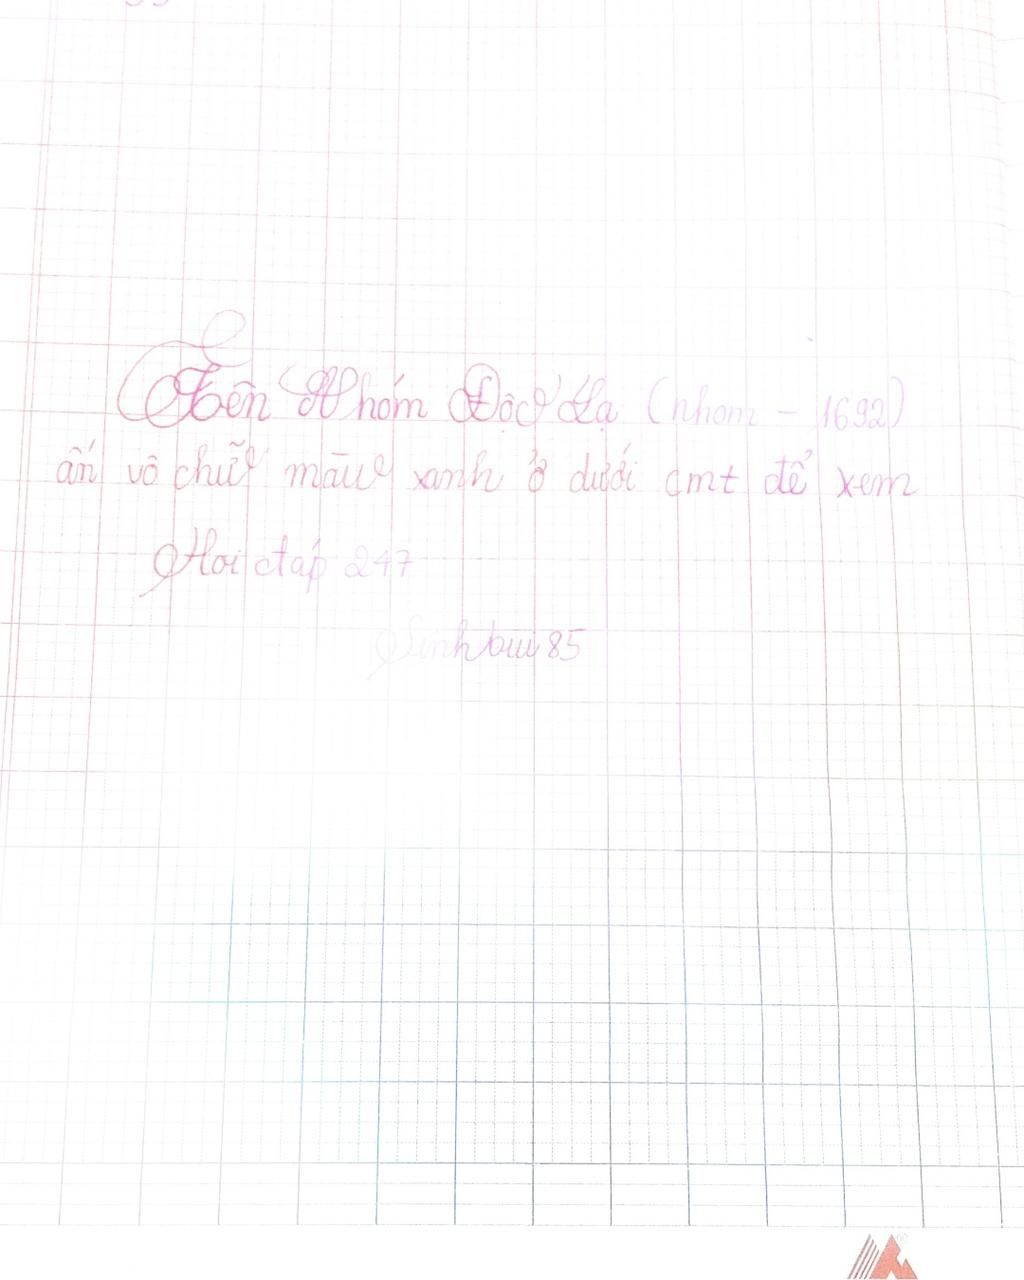 Tên Nhóm Độc Lạ (nhom - 1692)
ấn vô chữ màu xanh ở dưới cmt để xem
Hoi đap 247
Sinhbui85